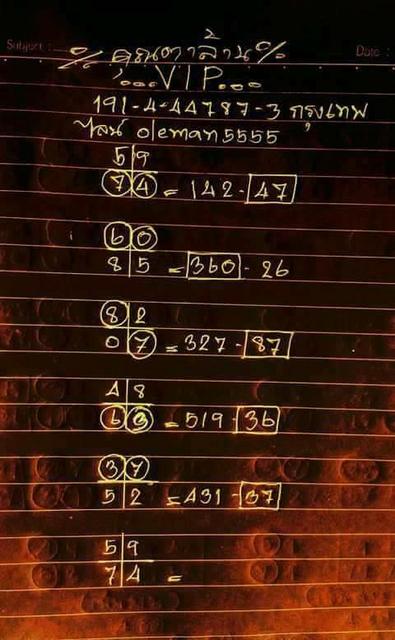 Subject : Date :
% คุณตาล้าน %
...VIP...
191-4-44787-3 กรุงเทพ
ไลน์ oleman5555
5 9
7 4 = 142-47
6 0
8 5 = 360-26
8 2
0 7 = 327-87
4 8
6 3 = 519-36
3 7
5 2 = 431-37
5 9
7 4 =